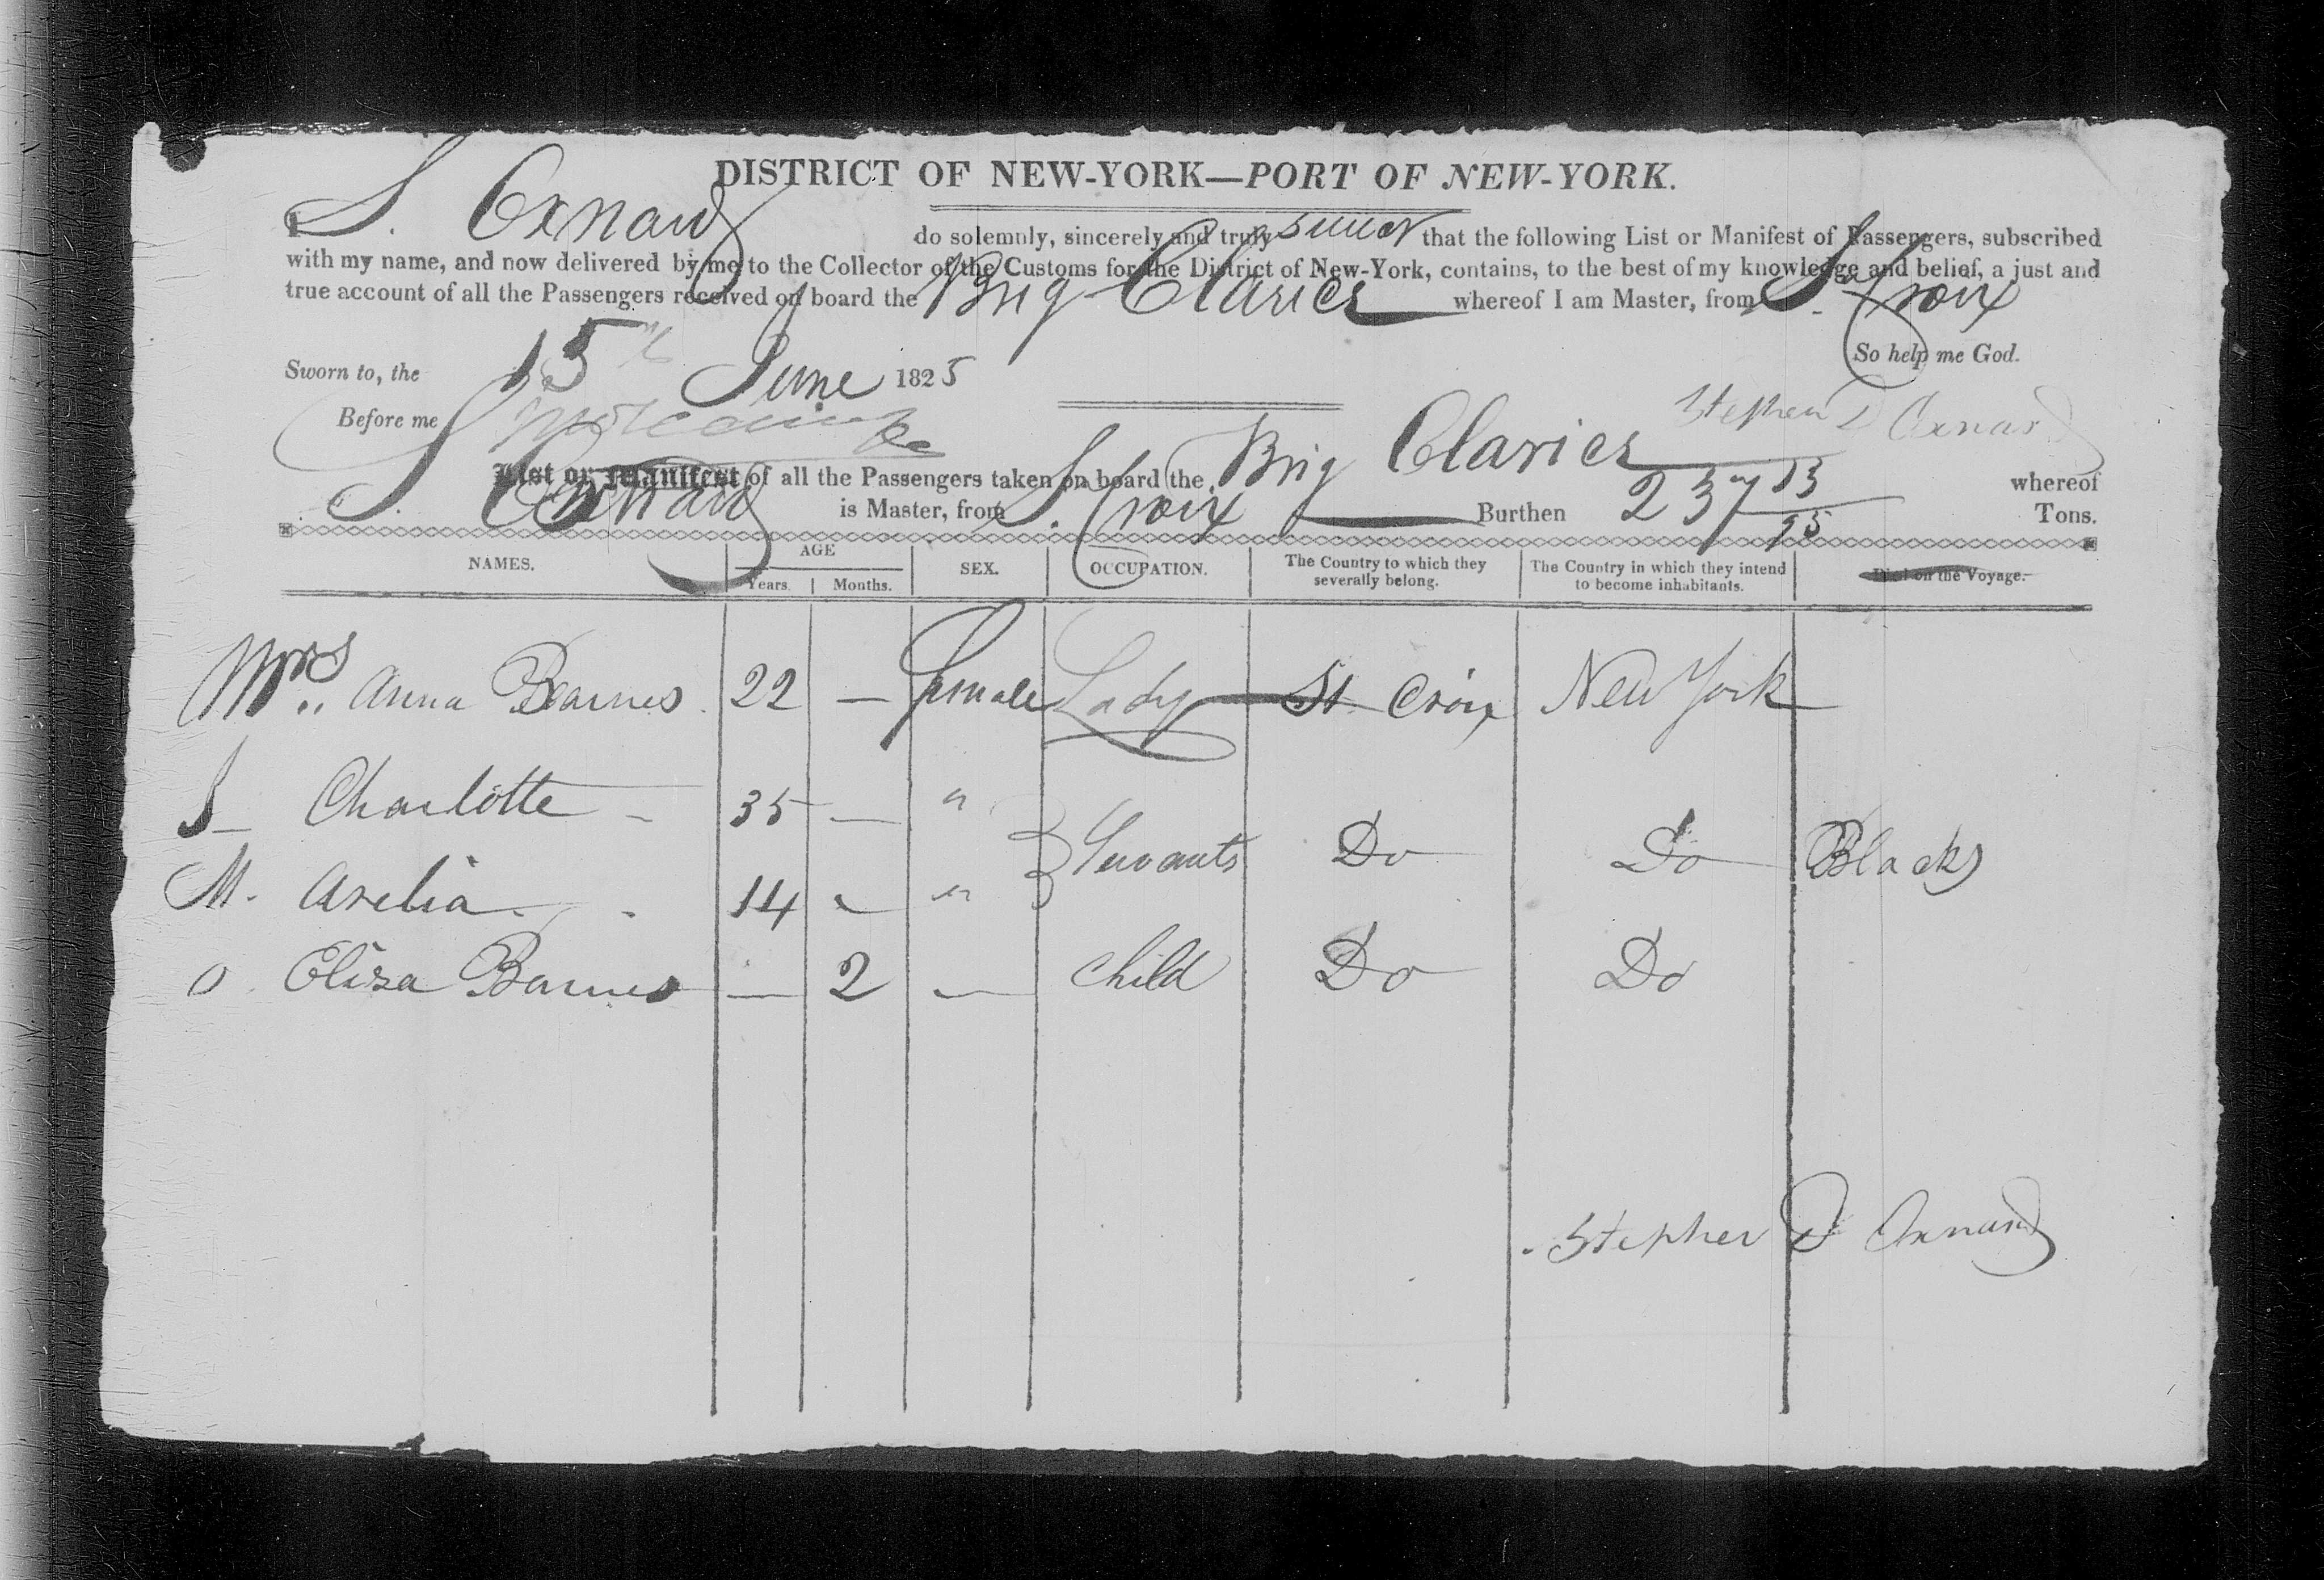 DISTRICT OF NEW-YORK—PORT OF NEW-YORK.
I S. Oxnard do solemnly, sincerely and truly swear that the following List or Manifest of Passengers, subscribed
with my name, and now delivered by me to the Collector of the Customs for the District of New-York, contains, to the best of my knowledge and belief, a just and
true account of all the Passengers received on board the Brig Clarice whereof I am Master, from St Croix
So help me God.
Sworn to, the 15th June 1825
Before me
Stephen D Oxnard
List or Manifest of all the Passengers taken on board the Brig Clarice whereof
S. Oxnard is Master, from St Croix Burthen 237 13/95 Tons.
NAMES. AGE Years. Months. SEX. OCCUPATION. The Country to which they severally belong. The Country in which they intend to become inhabitants. Died on the Voyage.
Mrs. Anna Barnes 22 — Female Lady St Croix New York
S Charlotte 35 — " Servants Do Do Blacks
M. Arelia 14 — "
O Eliza Barnes — 2 — child Do Do
Stephen D Oxnard